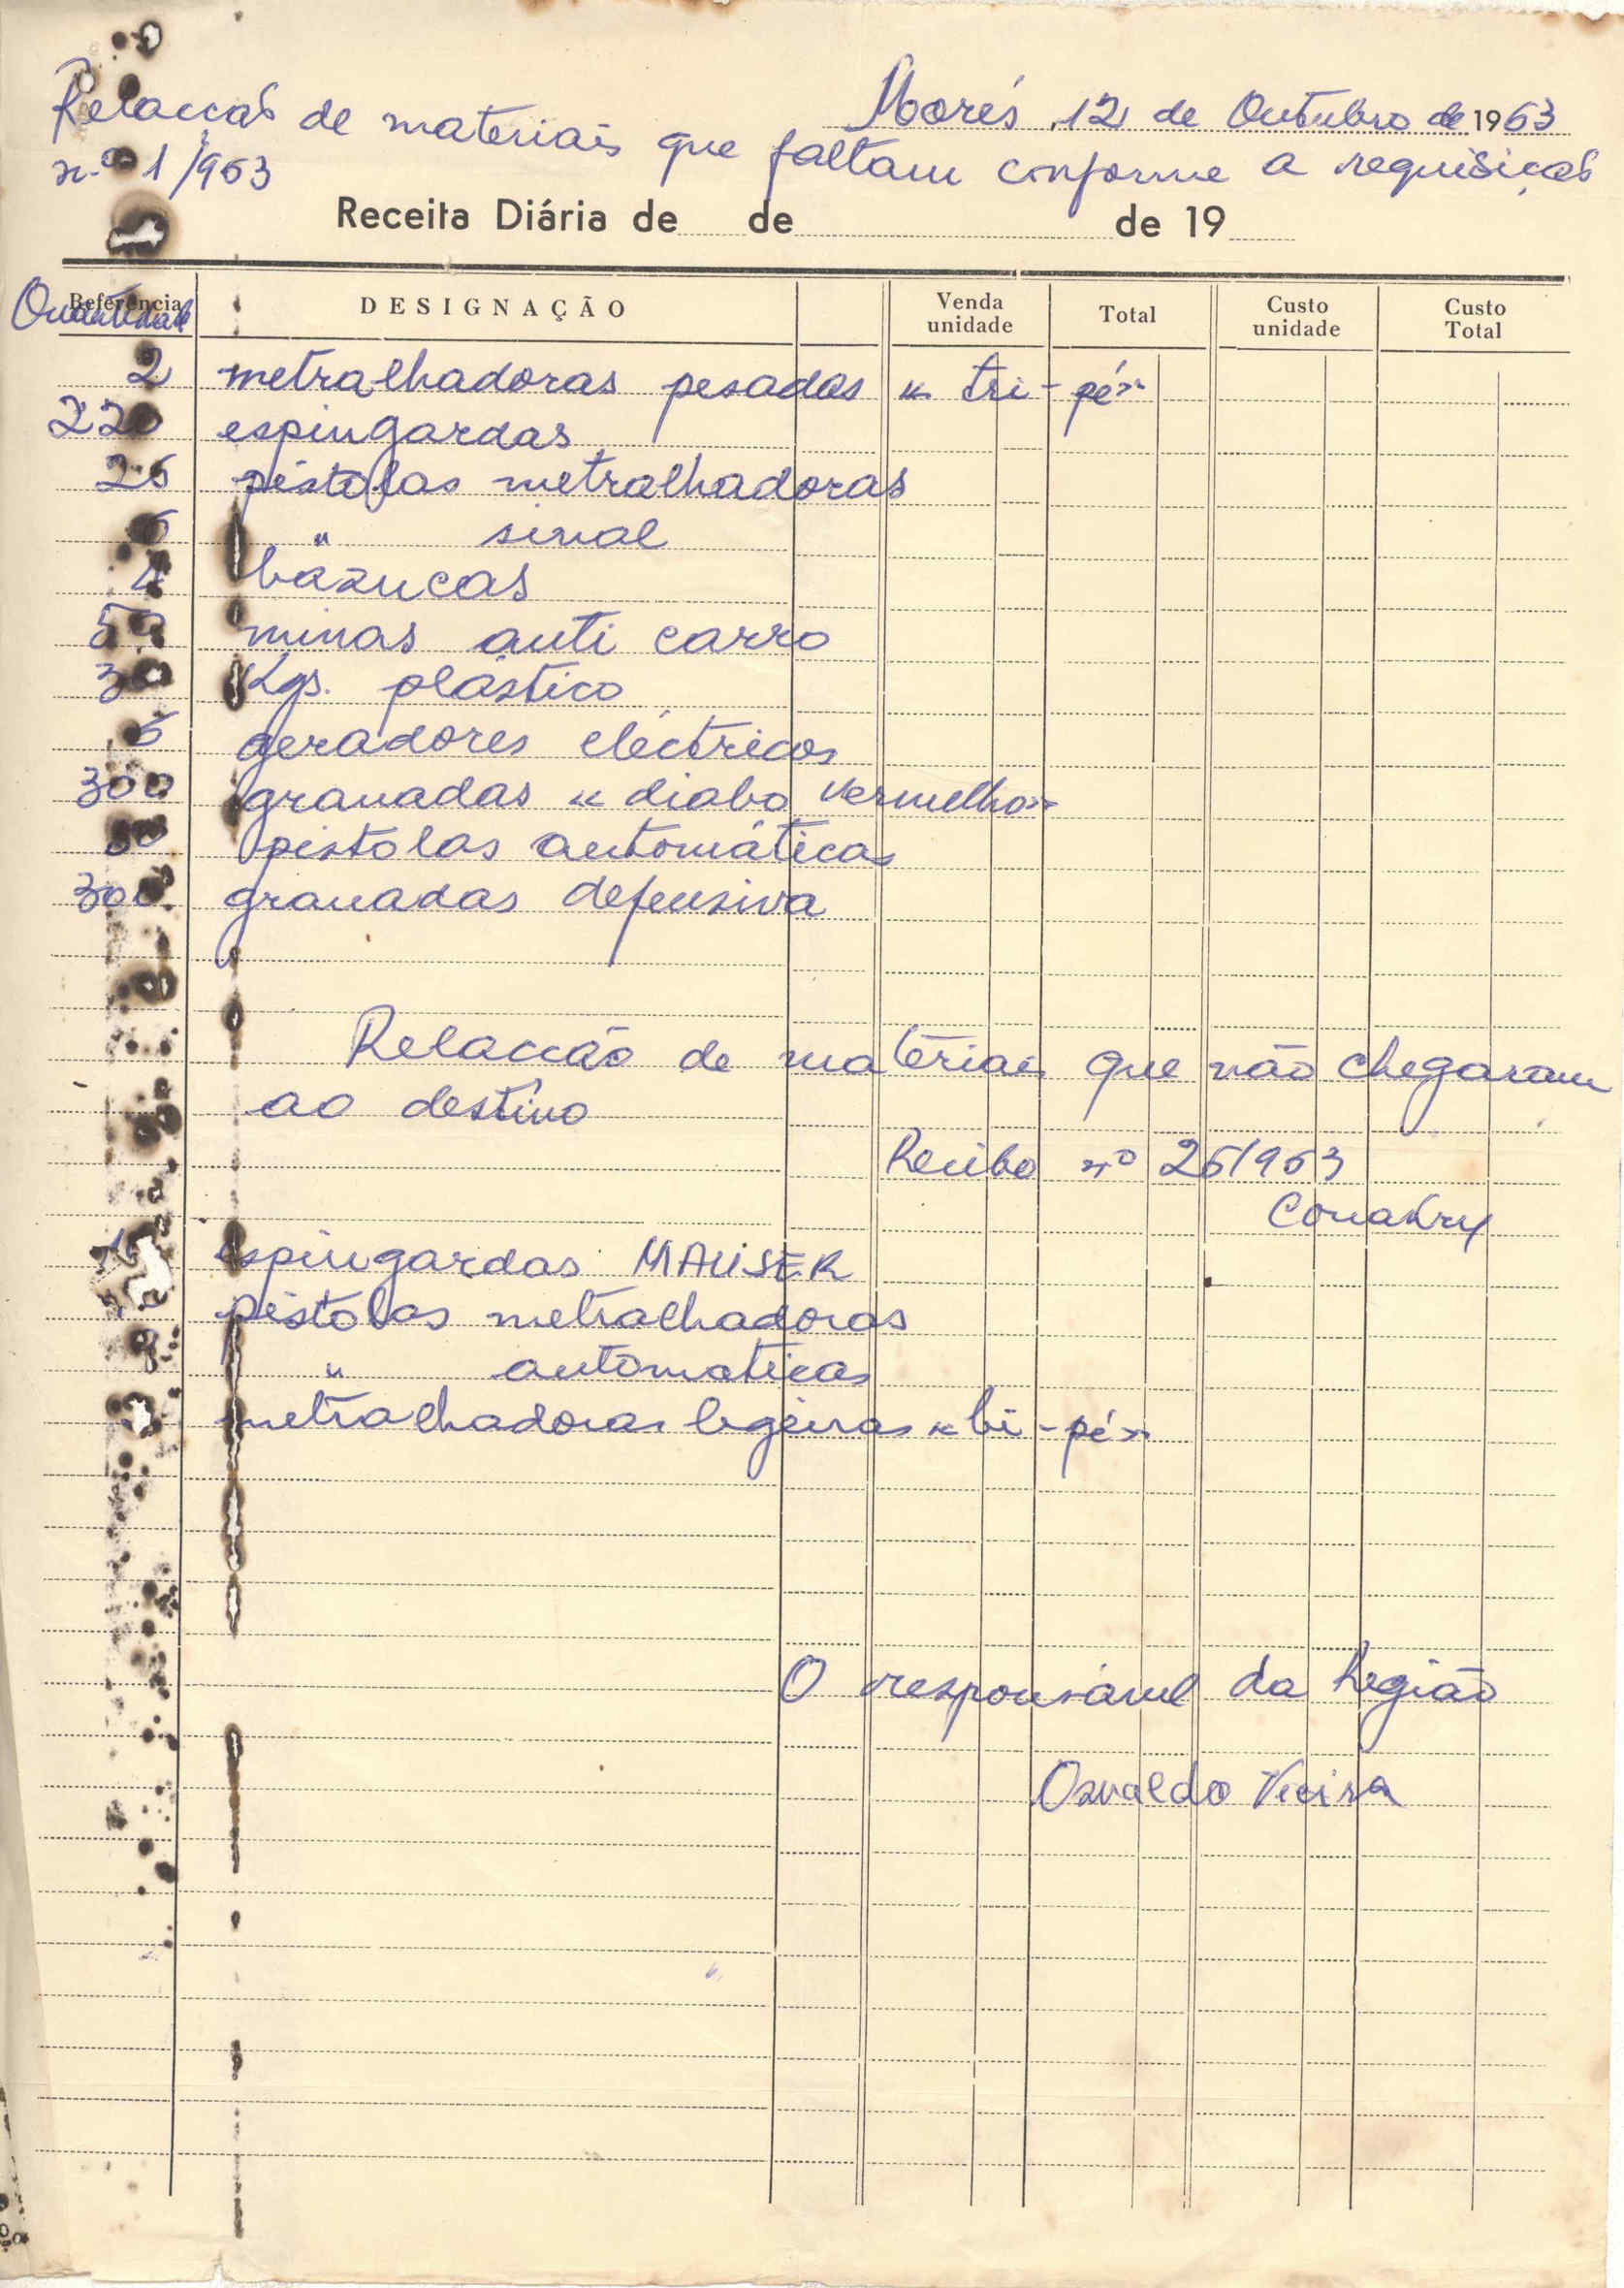 Morés, 12 de Outubro de 1963
Relacção de materiais que faltam conforme a requisição
n.º 1/963
Receita Diária de de de 19
Referência DESIGNAÇÃO Venda unidade Total Custo unidade Custo Total
Quantidade
2 metralhadoras pesadas « tri-pé»
220 espingardas
25 pistolas metralhadoras
" sinal
4 bazucas
minas anti carro
30 Kgs. plástico
geradores eléctricos
300 granadas « diabo vermelho»
pistolas automáticas
300 granadas defensiva
Relacção de materiais que não chegaram
ao destino
Recibo nº 25/963
Conakry
espingardas MAUSER
pistolas metralhadoras
" automaticas
metralhadoras ligeiras «bi-pé»
O responsável da Região
Osvaldo Vieira